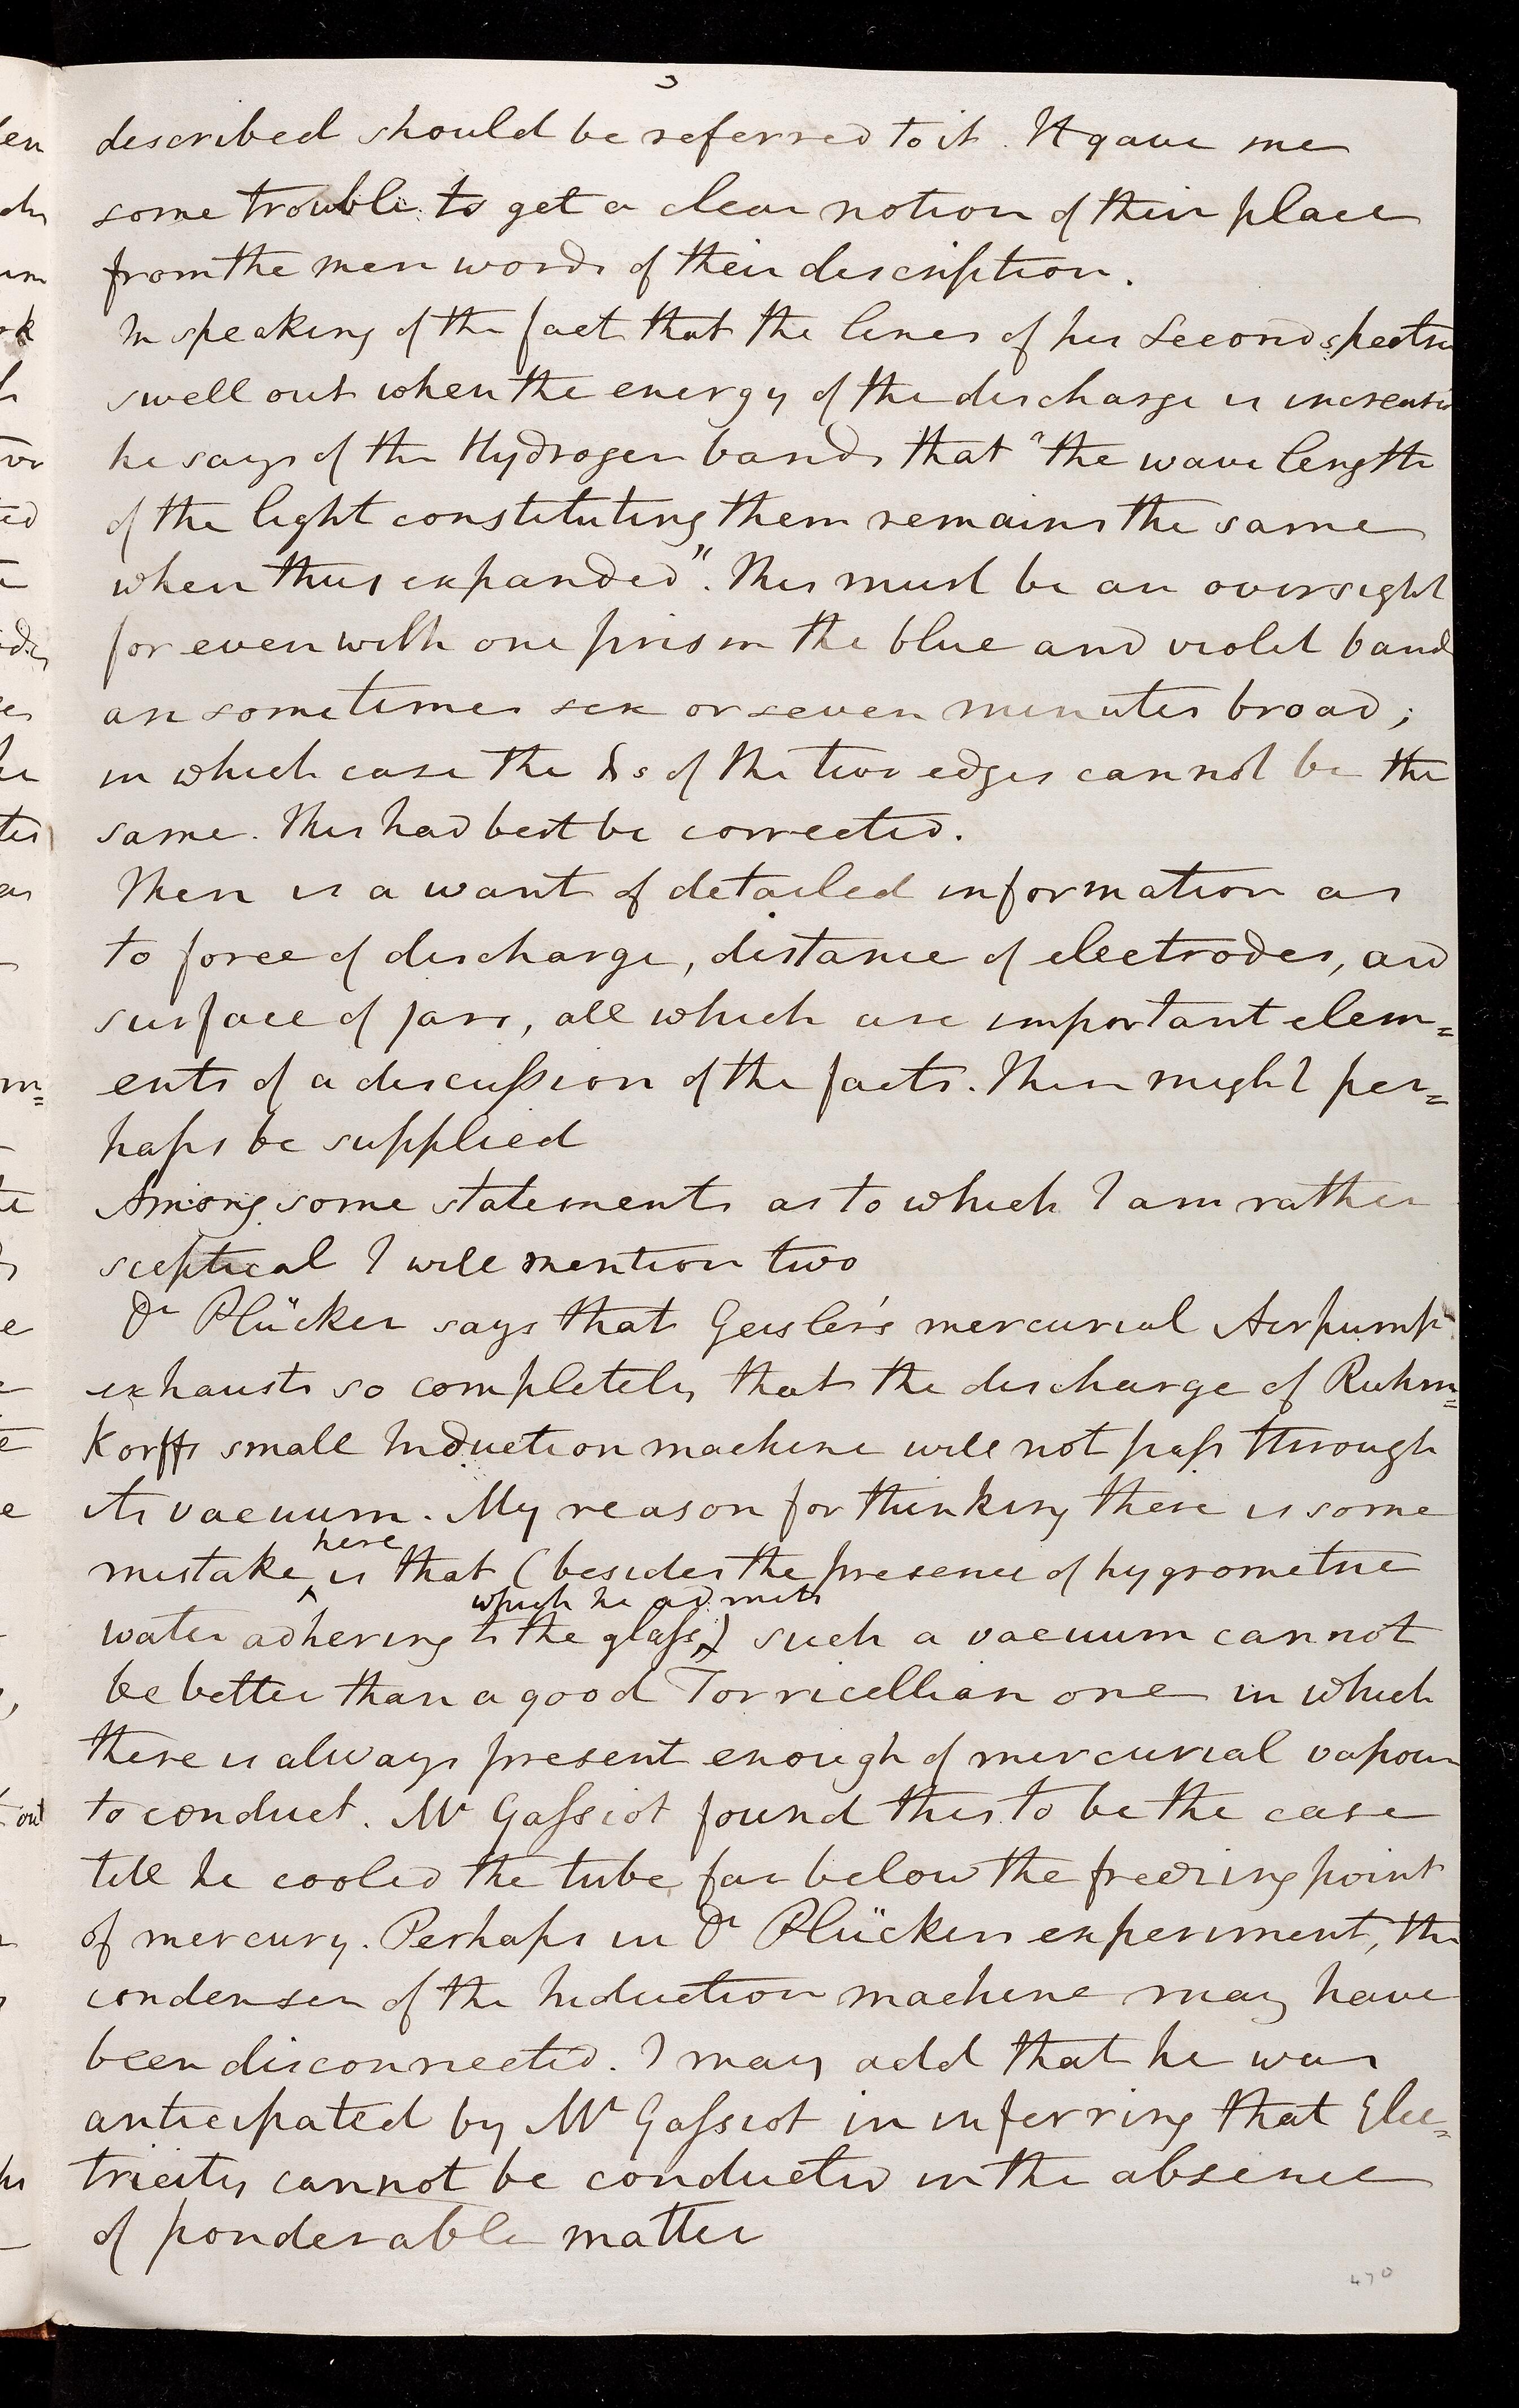 3
described should be referred to it. It gave me
some trouble to get a clear notion of their place
from the mere words of their description.
In speaking of the fact that the lines of his Second spectra
swell out when the energy of the discharge is increased
he says of the Hydrogen bands that "the wave length
of the light constituting them remains the same
when thus expanded". This must be an oversight
for even with one prism the blue and violet bands
are sometimes six or seven minutes broad;
in which case the λs of the two edges cannot be the
same. This had best be corrected.
There is a want of detailed information as
to force of discharge, distance of electrodes, and
surface of jars, all which are important elem=
ents of a discussion of the facts. These might per=
haps be supplied
Among some statements as to which I am rather
sceptical I will mention two
Dr Plücker says that Geisler's mercurial Airpump
exhausts so completely that the discharge of Ruhm=
Korffs small Induction machine will not pass through
its vacuum. My reason for thinking there is some
mistake here is that (besides the presence of hygrometric
water adhering to the glass which he admits) such a vacuum cannot
be better than a good Torricellian one in which
there is always present enough of mercurial vapour
to conduct. Mr Gassiot found this to be the case
till he cooled the tube far below the freezing point
of mercury. Perhaps in Dr Plückers experiment, the
condenser of the Induction machine may have
been disconnected. I may add that he was
anticipated by Mr Gassiot in inferring that Elec=
tricity cannot be conducted in the absence
of ponderable matter
470